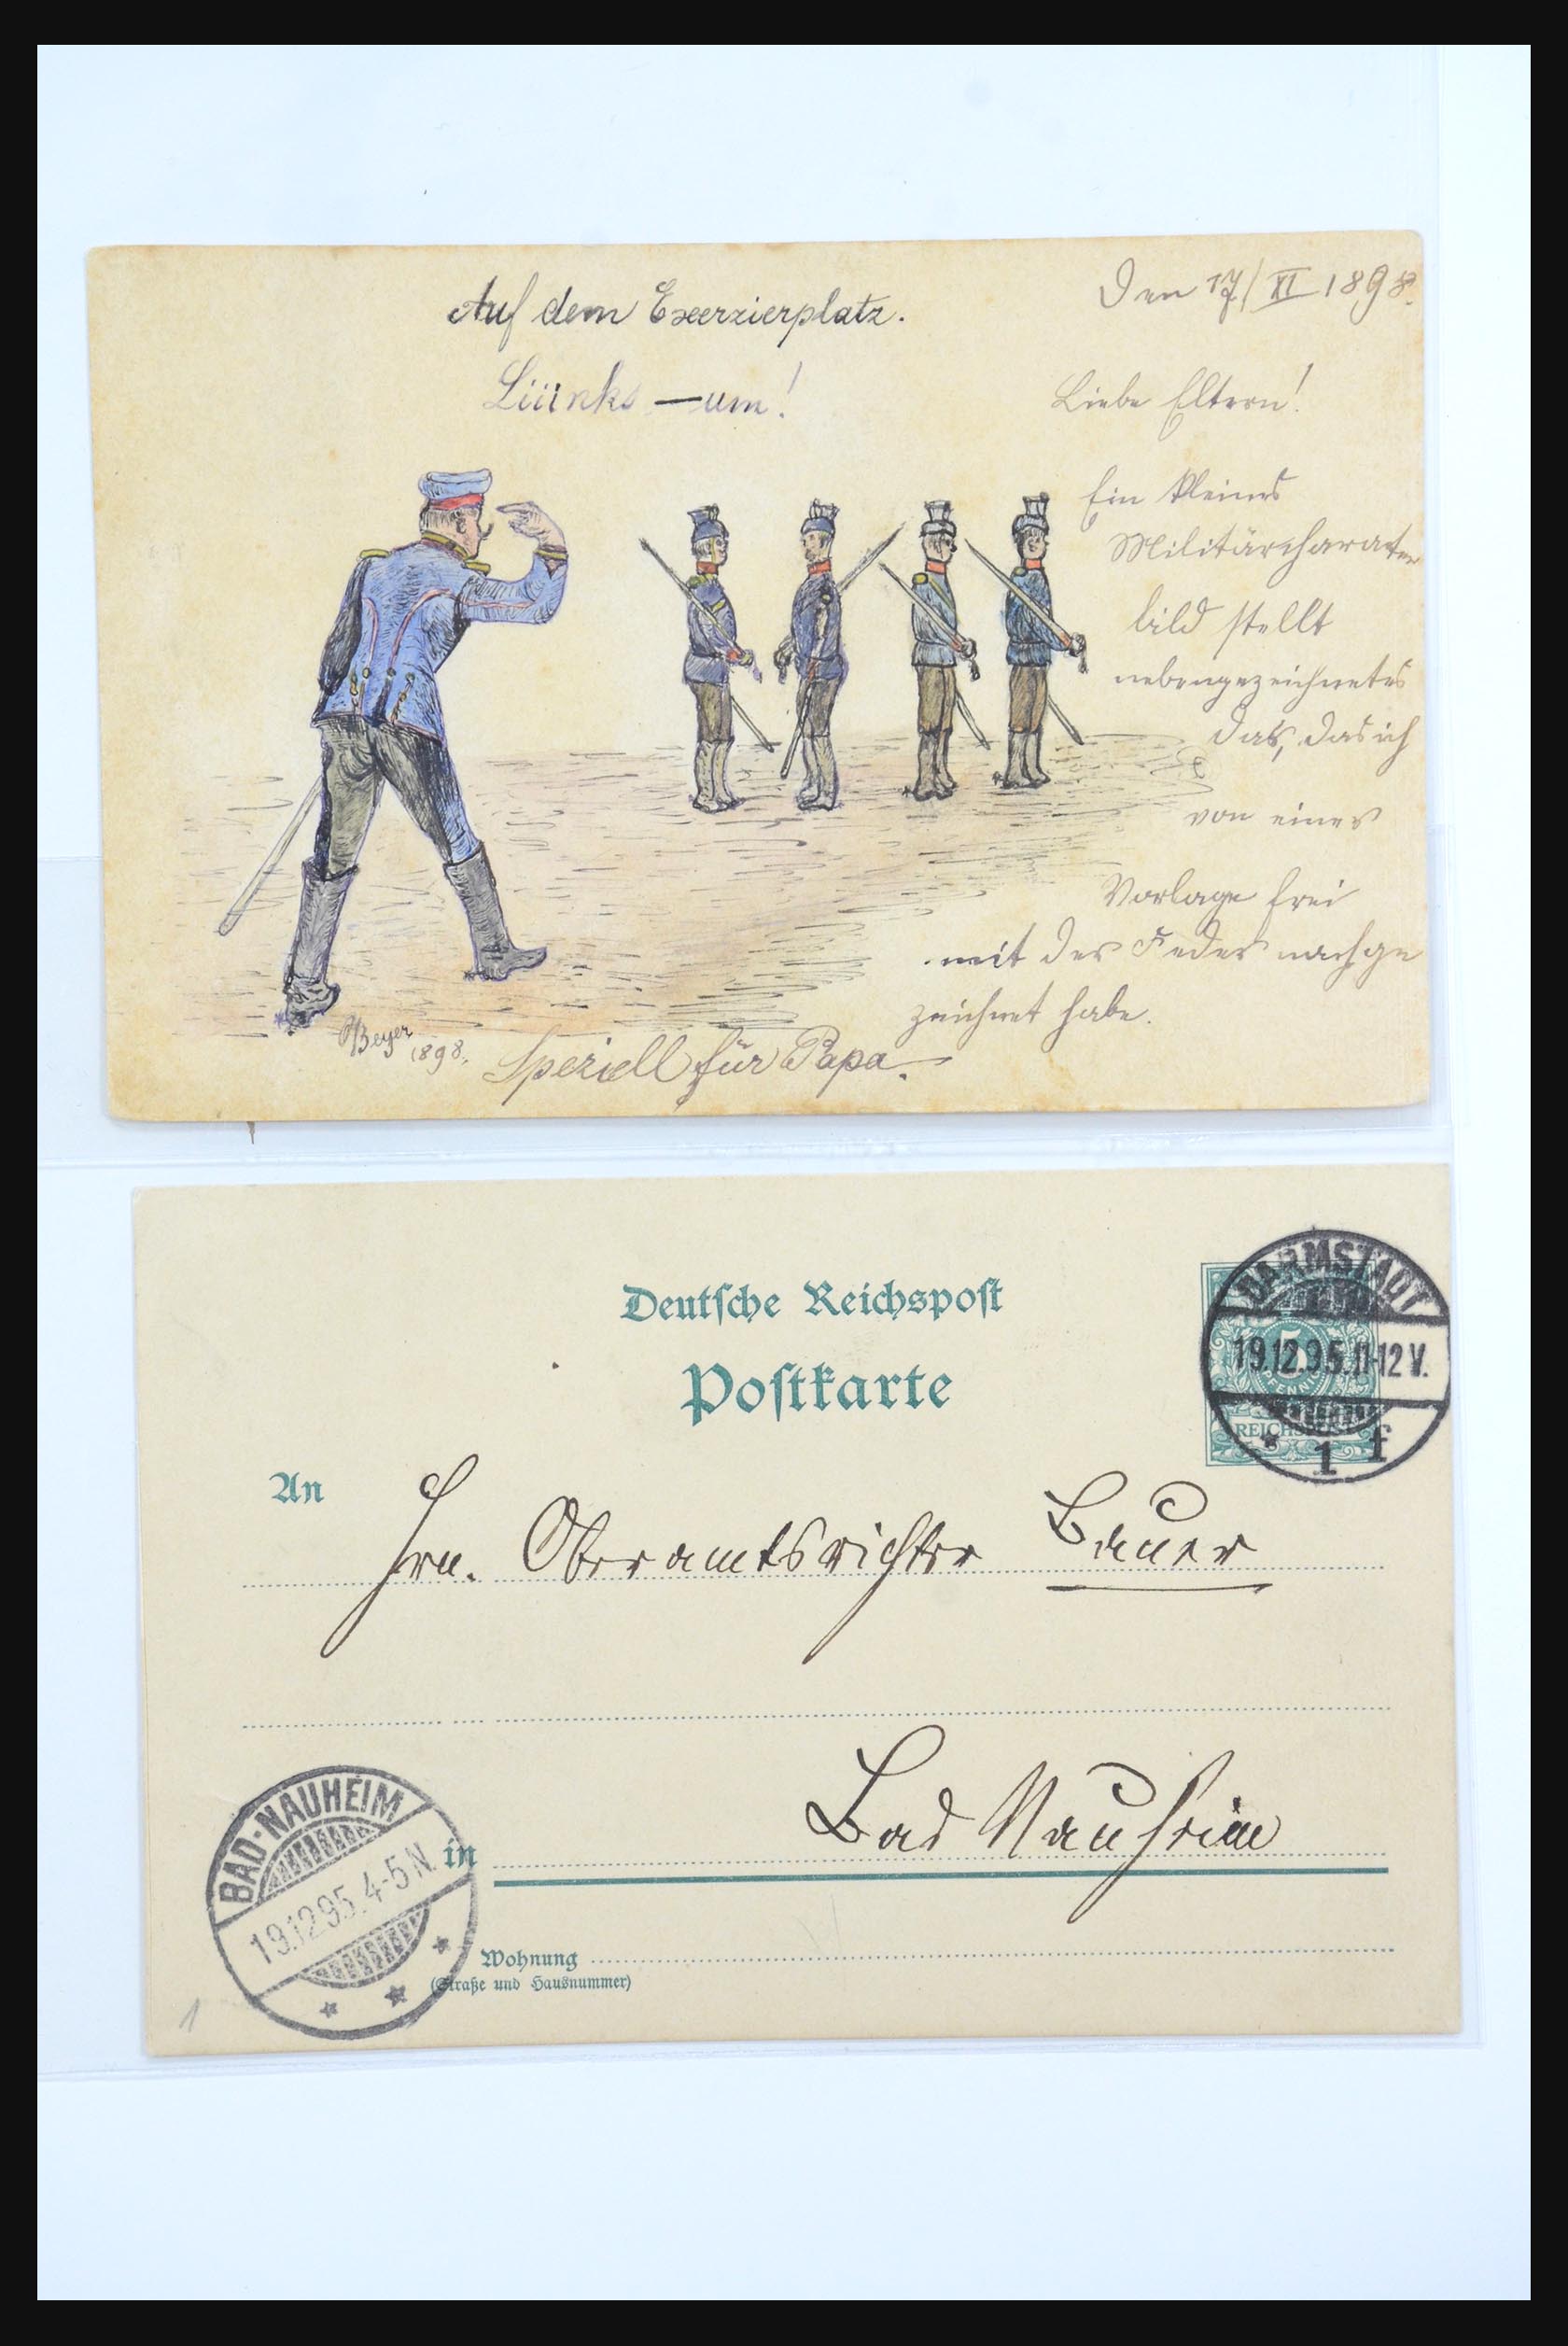 Auf dem Exerzierplatz.
Den 17/XI 1898.
Lüünks — um!
Liebe Eltern!
Ein kleines
Militärcharater
bild stellt
nebengezeichnetes
das, das ich
von einer
Vorlage frei
mit der Feder nachge
zeichnet habe.
Beyer
1898.
Speziell für Papa.
Deutsche Reichspost
Postkarte
DARMSTADT
19.12.95.11-12V.
* 1 f
5
PFENNIG
REICHSPOST
An
Hrn. Oberamtsrichter Bauer
Bad Nauheim
in
BAD-NAUHEIM
19.12.95.4-5N.
* * *
Wohnung
(Straße und Hausnummer)
1